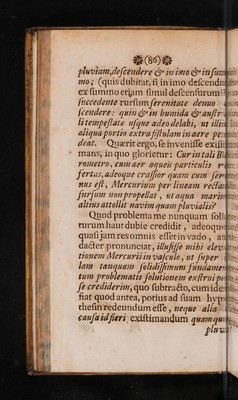 ❁ (86) ❁
pluviam, descendere & in imo & in
mo; (quis dubitat, si in imo descenda
ex summo etiam simul descensurum
succedente rursum serenitate denuo
scendere: quin & in humida & austr
li tempestate usque adeo delabi, ut illiu
aliqua portio extra fistulam in aere pe
deat. Quærit ergo, se invenisse exist
mans, in quo glorietur: Cur in tali B
rometro, cum aer aqueis particulis r
fertus, adeoque crassior quam cum sere
nus est, Mercurium per lineam rectam
sursum non propellat, ut aqua marin
altius attollit navim quam pluvialis?
Quod problema me nunquam solu
turum haut dubie credidit, adeoque
quasi jam res omnis esset in vado, au
dacter pronunciat, insusisse mihi eleva
tionem Mercurii in vasculo, ut super i
lam tanquam solidissimum fundame
tum problematis solutionem exstrui po
se crediderim, quo subtracto, cum idem
fiat quod antea, potius ad suam hyp
thesin redeundum esse, neque alia
causa id fieri existimandum quam qu
pluvi